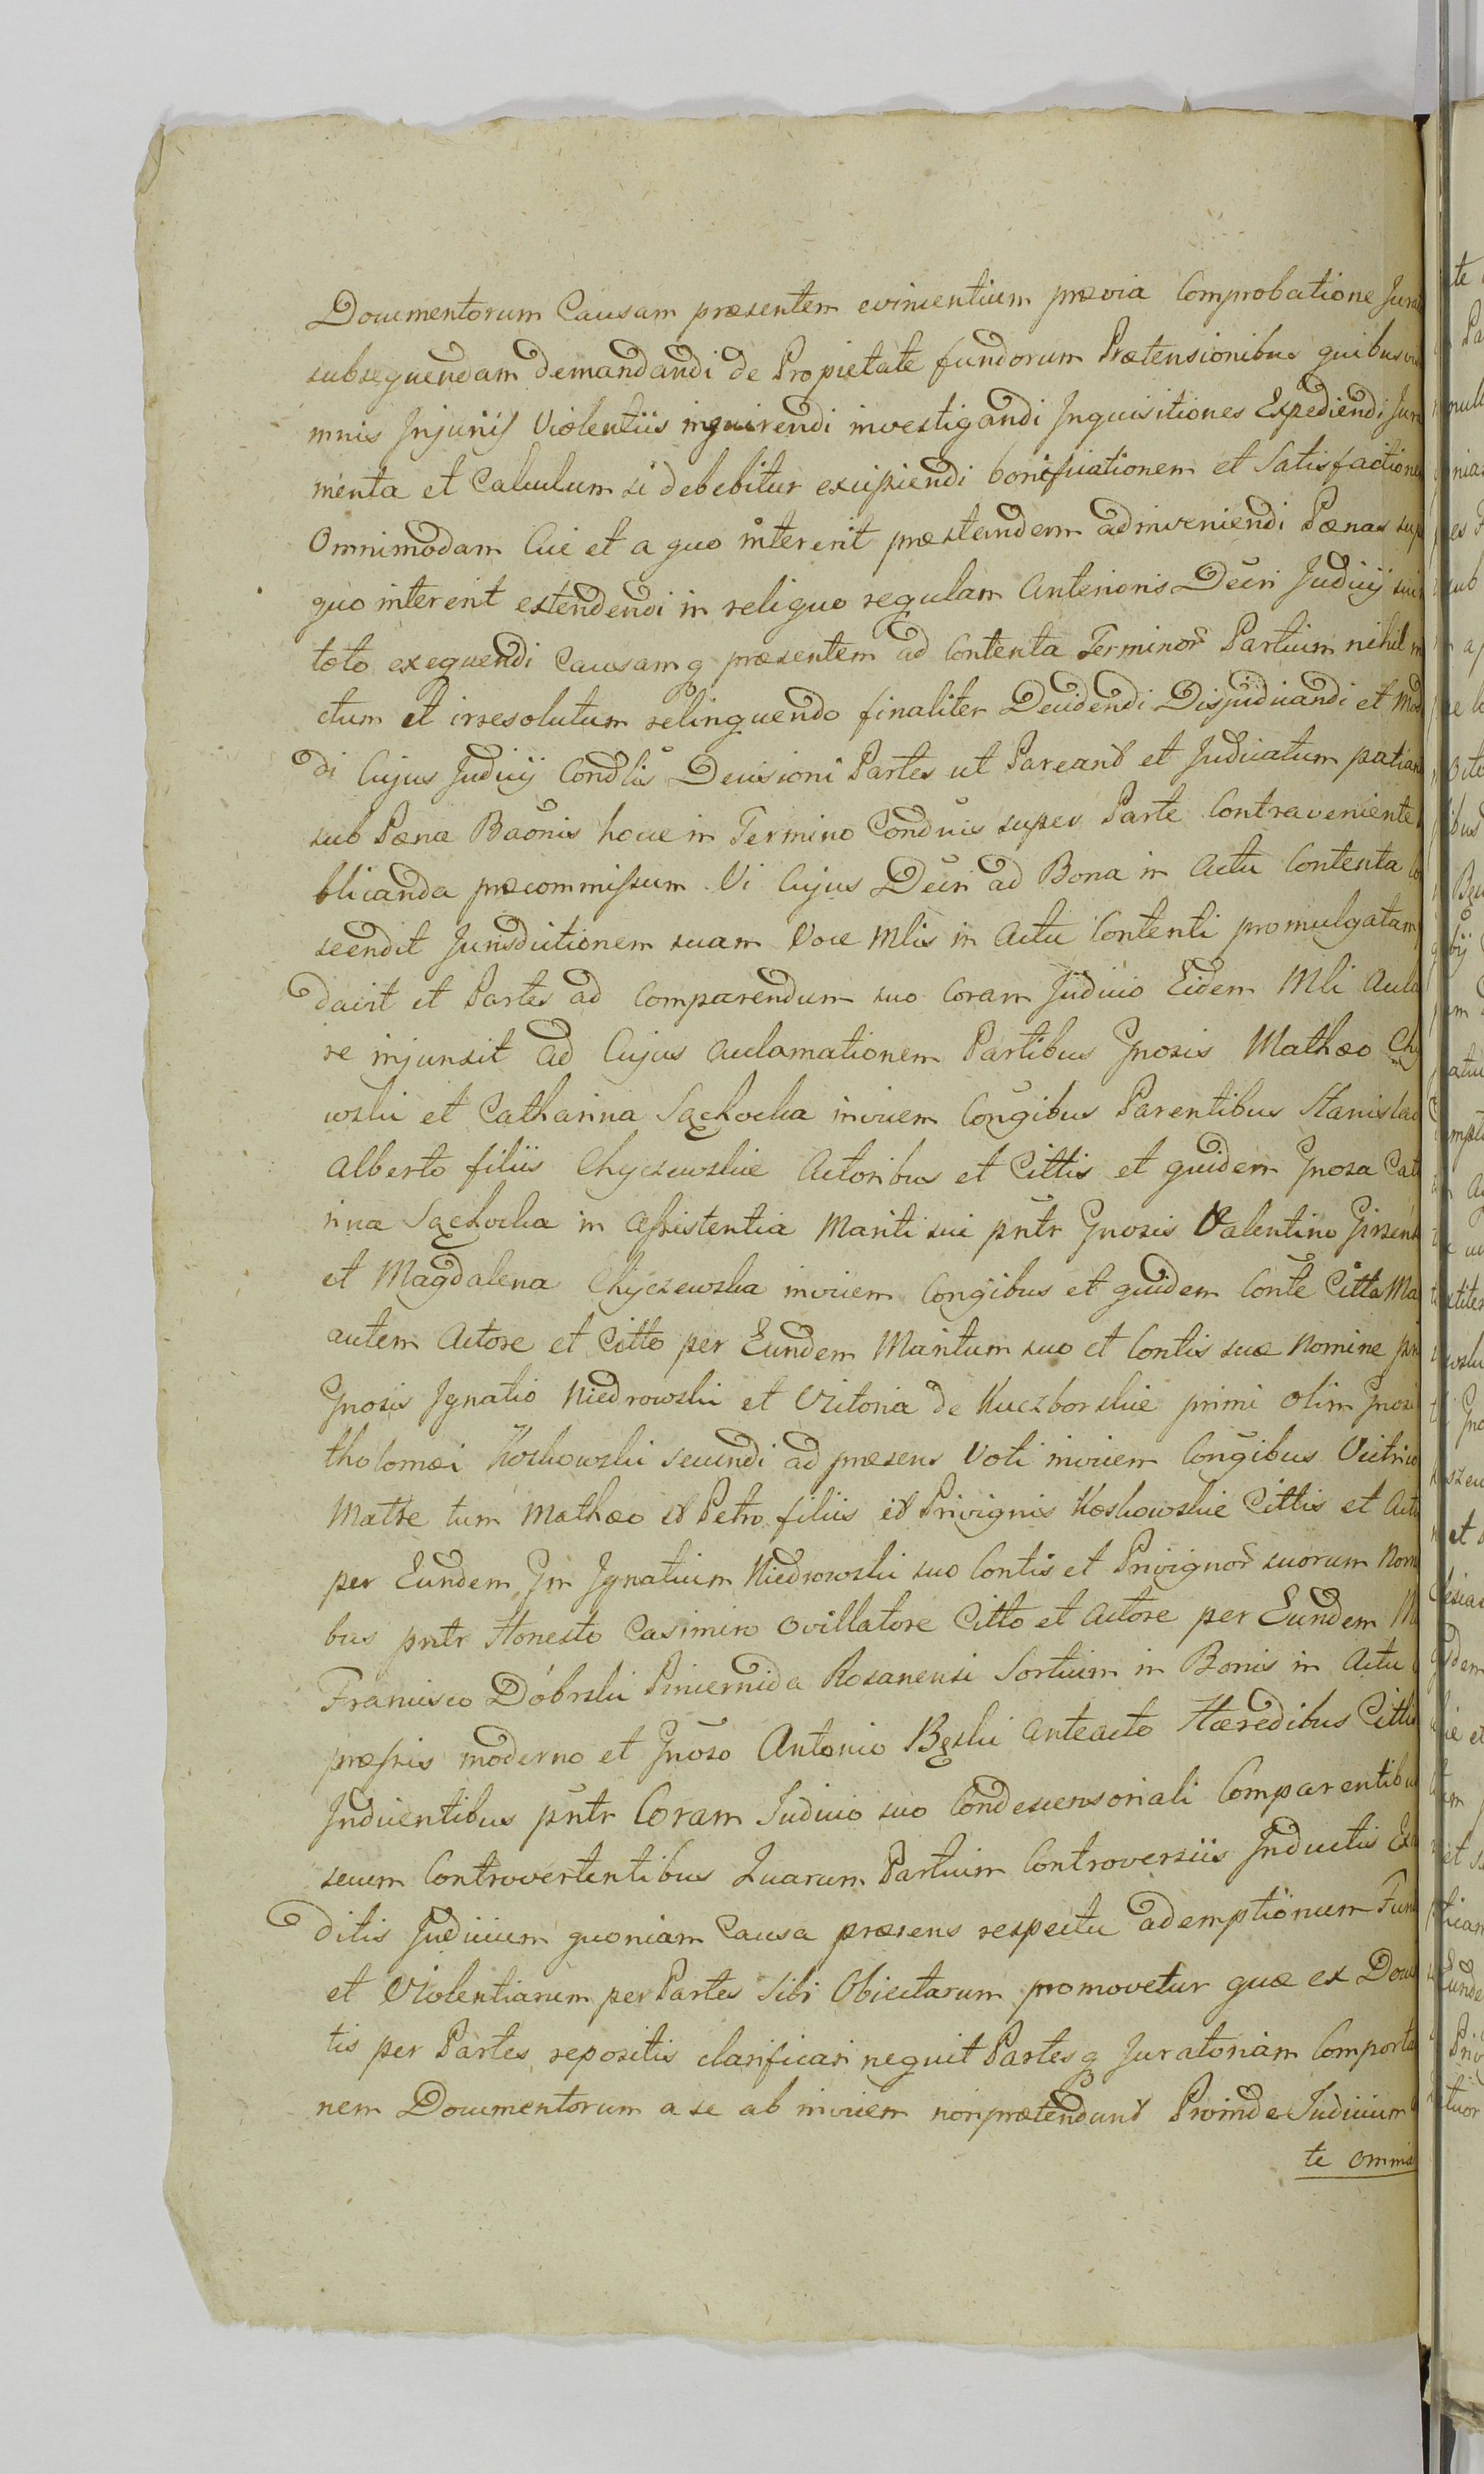 Documentorum Causam præsentem evincentium prævia Comprobatione
subsequendam demandandi de Propietate fundorum Prætensionibus quibusvis
mnis Injuriis Violentiis inquirendi investigandi Inquisitiones Expediendi Jura
menta et Calculum si debebitur excipiendi bonificationem et Satisfactionem
Omnimodam Cui et a quo intererit præstandem adinveniendi Pænas sup
quo intererit extendendi in reliquo regulam Anterioris Decri Judicij sui
toto exequendi Causamq præsentem ad Contenta Terminor Partium nihil in
ctum et irresolutum relinquendo finaliter Decidendi Disjudicandi et Mod
di Cujus Judicij Condlis Decisioni Partes ut Pareant et Judicatum patian
sub Pæna Baonis hocce in Termino Conduis super Parte Contraveniente
blicanda præcommissum Vi Cujus Decri ad Bona in Actu Contenta Co
scendit Jurisdictionem suam Voce Mlis in Actu Contenti promulgatam
davit et Partes ad Comparendum suo Coram Judicio Eidem Mli Acla
re injunxit ad Cujus acclamationem Partibus Gnosis Mathæo Chy
wski et Catharina Sąchocka invicem Congibus Parentibus Stanislao
Alberto filiis Chyczewskie Actoribus et Cittis et quidem Gnosa Cat
rina Sąchocka in Assistentia Mariti sui pntr Gnosis Valentino
et Magdalena Chyczewska invicem Congibus et quidem Conte Citta Ma
autem Actore et Citto per Eundem Maritum suo et Contis suæ Nomine pn
Gnosis Ignatio Niedrowski et Victoria de Kuczborskie primi olim Gnosi
tholomæi Koskowski secundi ad præsens Voti invicem Congibus Vitrico
Matre tum Mathæo et Petro filiis et Privignis Koskowskie Cittis et Act
per Eundem Gm Ignatium Niedrowski suo Contis et Privignor suorum Nom
bus pntr Honesto Casimiro Ovillatore Citto et Actore per Eundem M
Francisco Dóbrski Pincernida Rosanensi Sortium in Bonis in Actu
præssis moderno et Gnoso Antonio Bęski Anteacto Hæredibus Cittis
Inducentibus pntr Coram Judicio suo Condescensoriali Comparentibus
secum Controvertentibus Quarum Partium Controversiis Inductis Ex
ditis Judicium quoniam Causa præsens respectu ademptionum Fund
et Violentiarum per Partes sibi Obiectarum promovetur quæ ex Docu
tis per Partes repositis clarificari nequit Partesq Juratoriam Comporta
nem Documentorum a se ab invicem non prætendunt Proinde Judicium
te omnia